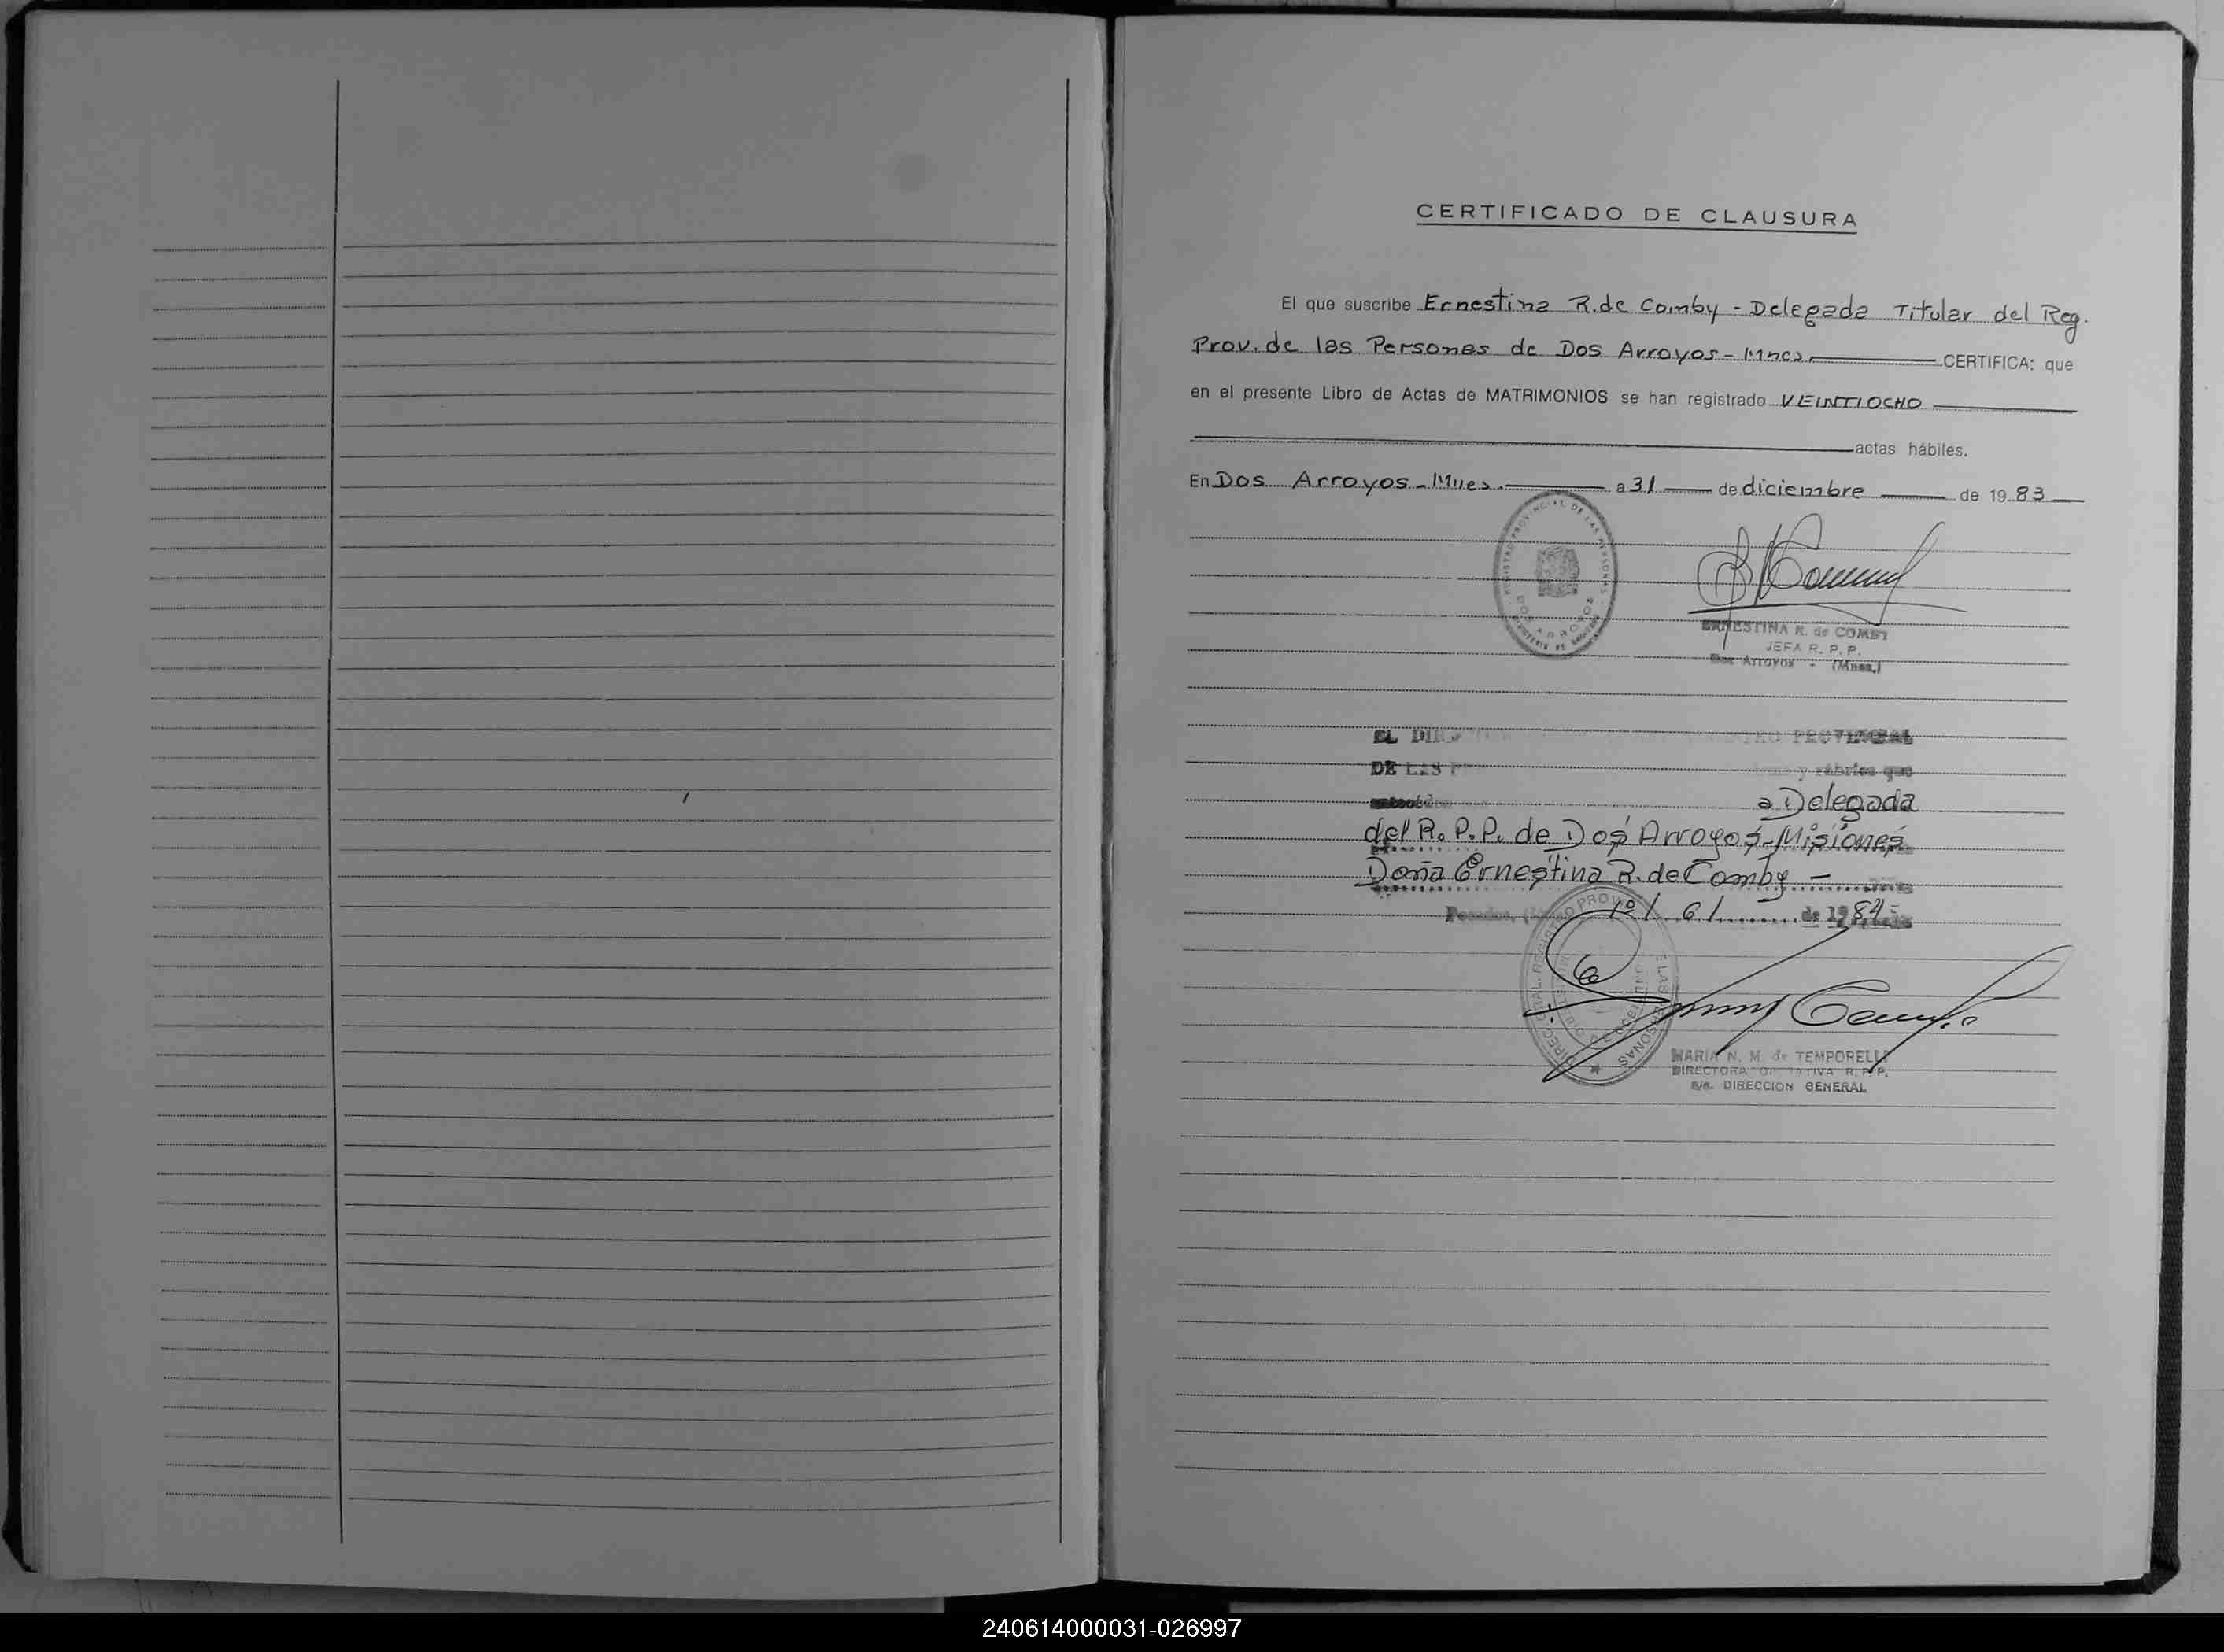 CERTIFICADO DE CLAUSURA
El que suscribe Ernestina R. de Comby - Delegada Titular del Reg.
Prov. de las Personas de Dos Arroyos - Mnes. CERTIFICA: que
en el presente Libro de Actas de MATRIMONIOS se han registrado VEINTIOCHO
actas hábiles.
En Dos Arroyos - Mnes. a 31 de diciembre de 1983
REGISTRO PROVINCIAL DE LAS PERSONAS
DOS ARROYOS
ERNESTINA R. de COMBY
JEFA R. P. P.
Dos Arroyos - (Mnes.)
EL PROVINCIAL
DE LAS y rúbrica que
a Delegada
del R. P. P. de Dos Arroyos - Misiones
Doña Ernestina R. de Comby -
de 1984
MARIA N. M. de TEMPORELLI
DIRECTORA R. P. P.
DIRECCION GENERAL
240614000031-026997